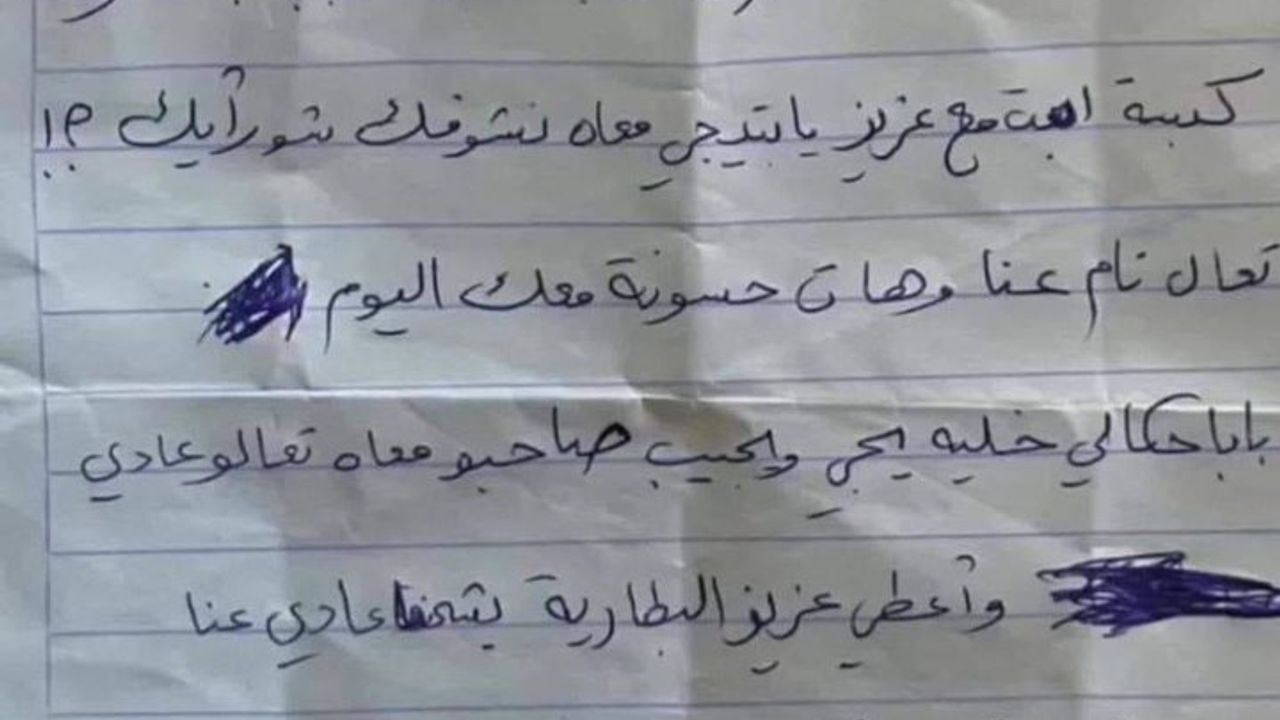 كبسة ابعت مع عزيز يا بتديجي معاه نشوفك شو رأيك ؟!
تعال نام عنا وهات حسونة معك اليوم
بابا حكالي خليه يجي ويجيب صاحبو معاه تعالو عادي
وأعطي عزيز البطارية يشحنها عادي عنا